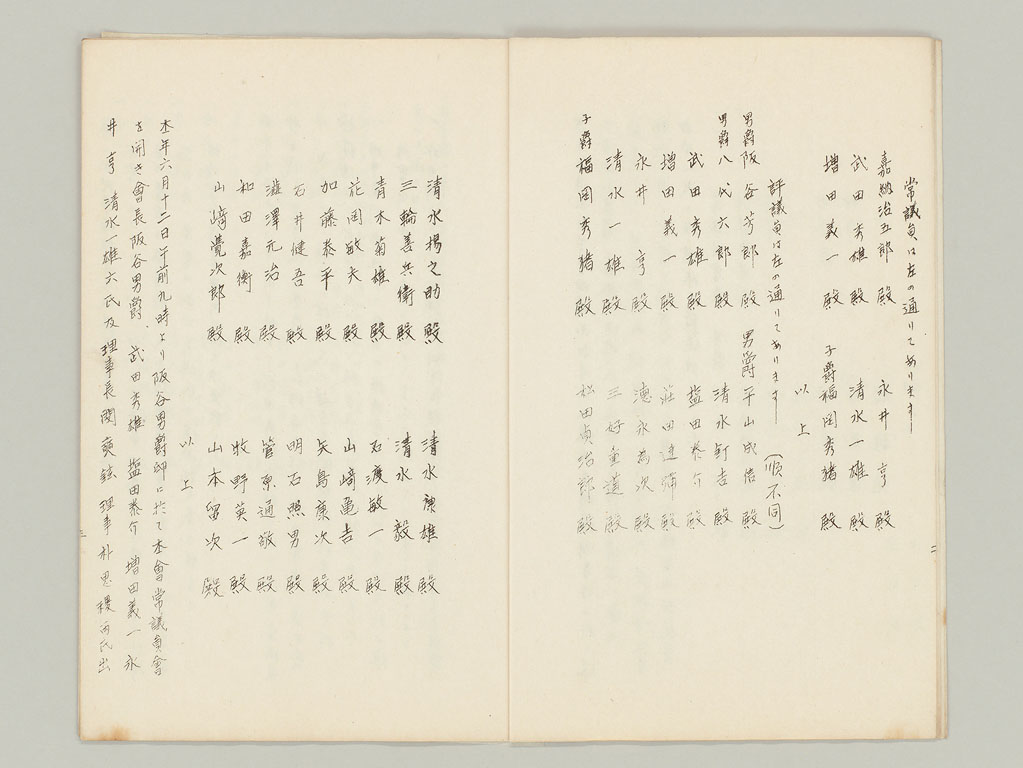 常議員は左の通りであります―
嘉納治五郎 殿 永井 亨 殿
武田秀雄 殿 清水一雄 殿
増田義一 殿 子爵福岡秀猪 殿
以上
評議員は左の通りであります― (順不同)
男爵阪谷芳郎 殿 男爵平山成信 殿
男爵八代六郎 殿 清水釘吉 殿
武田秀雄 殿 塩田泰介 殿
増田義一 殿 荘田達弥 殿
永井 亨 殿 徳永為次 殿
清水一雄 殿 三好重道 殿
子爵福岡秀猪 殿 松田貞治郎 殿
二
清水揚之助 殿 清水康雄 殿
三輪善兵衛 殿 清水 毅 殿
青木菊雄 殿 石渡敏一 殿
花岡敏夫 殿 山崎亀吉 殿
加藤泰平 殿 矢島廉次 殿
石井健吾 殿 明石照男 殿
渋澤元治 殿 菅原通敬 殿
和田嘉衡 殿 牧野英一 殿
山﨑覚次郎 殿 山本留次 殿
以上
本年六月十二日午前九時より阪谷男爵邸に於て本會常議員會
を開き會長阪谷男爵、武田秀雄 塩田泰介 増田義一 永
井 亨 清水一雄六氏及理事長 理事朴思稷両氏出
三